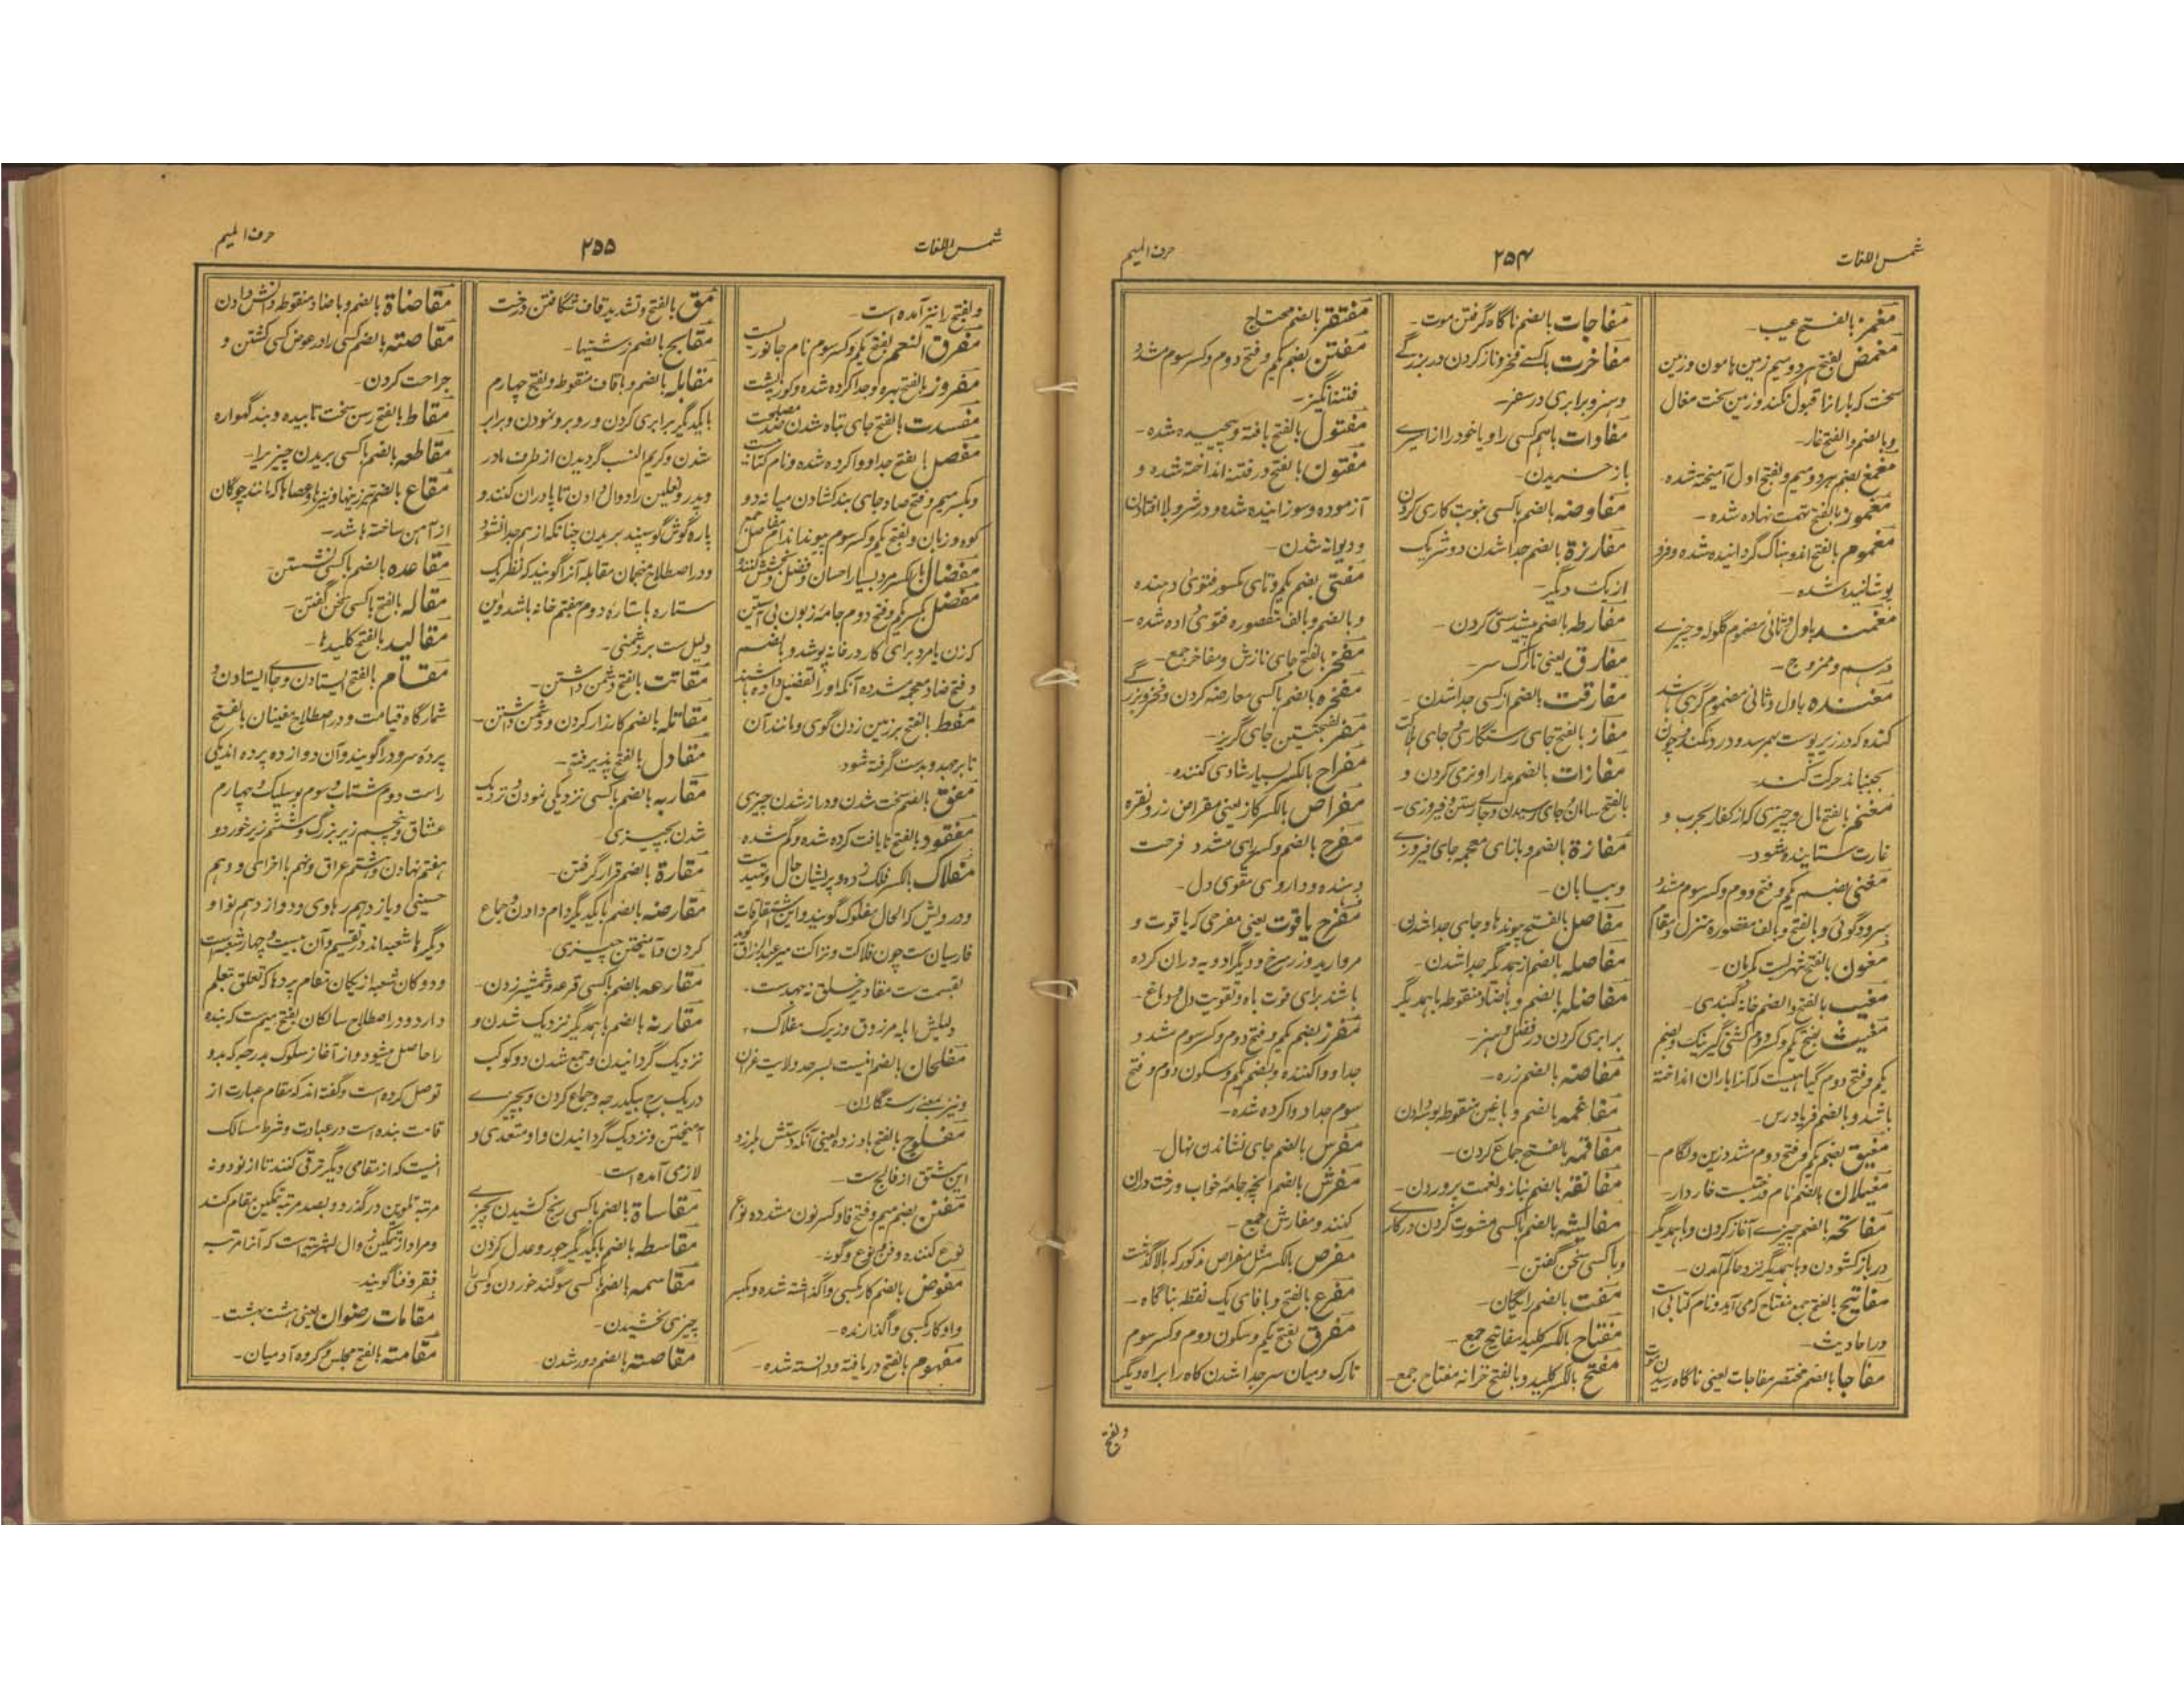 شمس اللغات
۲۵۴
حرف المیم
مغمز بالفتح عیب۔
مغمض بفتح هر دو میم زمین هامون و زمین
سخت که باران را قبول نکند و زمین سخت مغاک
و بالضم و الفتح غار۔
مغمغ بضم هر دو میم و بفتح اول آمیخته شده۔
مغموز بالفتح تهمت نهاده شده۔
مغموم بالفتح اندوهناک گردانیده شده و فرو
پوشانیده شده۔
مغمند باول و ثانی مضموم گلوله و چیزے
درهم و ممزوج۔
مغنده باول و ثانی مضموم گرهی باشد
گنده که در زیر پوست بهم رسد و درد نکند و چون
بجنبانند حرکت کند۔
مغنم بالفتح مال و چیزی که از کفار بحرب و
غارت ستانیده شود۔
مغنی بضم یکم و فتح دوم و کسر سوم مشدد
سرودگوئی و بالفتح و بالف مقصوره منزل و مقام
مغون بالفتح شهریست کرمان۔
مغیب بالفتح و الضم خانه گنبدی۔
مغیث بفتح یکم و کسر دوم
یکم و فتح دوم گیاهیست که آنرا باران انداخته
باشد و بالضم فریادرس۔
مغیق بضم یکم و فتح دوم مشدد زین و لگام۔
مغیلان بالضم نام درختیست خاردار۔
مفاتحه بالضم چیزے آغاز کردن و باهمدیگر
در باز کشودن و باهمدیگر نزد حاکم آمدن۔
مفاتیح بالفتح جمع مفتاح که می آید و نام کتابی است
در احادیث۔
مفاجا بالضم مختصر مفاجات یعنی ناگاه رسیدن موت
مفاجات بالضم ناگاه گرفتن موت۔
مفاخرت باکسے فخر و ناز کردن در بزرگے
و سیر و برابری در سفر۔
مفادات باهم کسی را و یا خود را از اسیرے
باز خریدن۔
مفاوضه بالضم باکسی بنوبت کاری کردن
مفارزة بالضم جدا شدن دو شریک
از یک دیگر۔
مفارطه بالضم پیشدستی کردن۔
مفارق یعنی تارک سر۔
مفارقت بالضم از کسی جدا شدن۔
مفاز بالفتح جای رستگاری و جای هلاکت
مفازات بالضم مدارا و نرمی کردن و
بالفتح سامان و جای رسیدن و جای رستن و فیروزی۔
مفازة بالضم و بازای معجمه جای فیروزے
و بیابان۔
مفاصل بالفتح پیوندها و جای جدا شدن
مفاصله بالضم از همدیگر جدا شدن۔
مفاضله بالضم و باضاد منقوطه باهمدیگر
برابری کردن در فضل و هنر۔
مفاضه بالضم زره۔
مفاغمه بالضم و باغین منقوطه بوسه دادن
مفاقمه بالفتح جماع کردن۔
مفانقه بالضم بناز و نعمت پروردن۔
بالضم باکسی مشورت کردن در کارے
و باکسی سخن گفتن۔
مفت بالضم رایگان۔
مفتاح بالکسر کلید مفاتیح جمع۔
مفتح بالکسر کلید و بالفتح خزانه مفتاح جمع۔
مفتقر بالضم محتاج
مفتن بضم یکم و فتح دوم و کسر سوم مشدد
فتنه انگیز۔
مفتول بالفتح بافته و پیچیده شده۔
مفتون بالفتح در فتنه انداخته شده و
آزموده و سوزانیده شده و در شر و بلا افتادن
و دیوانه شدن۔
مفتی بضم یکم و تای مکسور فتوی دهنده
و بالضم و بالف مقصوره فتوی داده شده۔
مفخر بالفتح جای نازش و مفاخر جمع۔
مفخره بالضم باکسی معارضه کردن و فخر و بزرگے
مفر بفتحتین جای گریز۔
مفراح بالکسر بسیار شادی کننده۔
مفراص بالکسر گاز یعنی مقراض زر و نقره
مفرح بالضم و کسر رای مشدد فرحت
دهنده و داروی مقوی دل۔
مفرح یاقوت یعنی مفرحی که یاقوت و
مروارید و زر سرخ و دیگر ادویه در آن کرده
باشند برای قوت باه و تقویت دل و دماغ۔
مفرز بضم یکم و فتح دوم و کسر سوم مشدد
جدا و واکننده و بضم یکم و سکون دوم و فتح
سوم جدا و واکرده شده۔
مفرس بالضم جای نشاندن نهال۔
مفرش بالضم آنچه جامۀ خواب و رخت در آن
کنند و مفارش جمع۔
مفرص بالکسر مثل مفراص مذکور که بالا گذشت
مفرع بالفتح و بافای یک نقطه بناگاه۔
مفرق بفتح یکم و سکون دوم و کسر سوم
تارک و میان سر جدا شدن گاه راه براه دیگر
و بفتح
شمس اللغات
۲۵۵
حرف المیم
و بفتح را نیز آمده است۔
مفرق النعم بفتح یکم و کسر سوم نام جانوریست
مفروز بالفتح بهره و جدا کرده شده و کوزپشت
مفسدت بالفتح جای تباه شدن ضد مصلحت
مفصل بالفتح جدا و واکرده شده و نام کتابیست
و بکسر میم و فتح صاد جای بند کشادن میانه دو
کوه و زبان و بفتح یکم و کسر سوم پیوند اندام مفاصل جمع
مفضال بالکسر مرد بسیار احسان و فضل و بخشش کننده
مفضل بکسر یکم و فتح دوم جامۀ زبون بی آستین
که زن یا مرد برای کار در خانه پوشد و بالضم
و فتح ضاد معجمه مشدده آنکه او را تفضیل داده باشند
مفط بالفتح بر زمین زدن گوی و مانند آن
تا برجهد و بدست گرفته شود۔
مفق بالضم سخت شدن و دراز شدن چیزی
مفقود بالفتح نایافت کرده شده و گم شده۔
مفلاک بالکسر فلک زده و پریشان حال و تهیدست
و درویش که الحال مفلوک گویند و این اشتقاقات
فارسیان ست چون فلاکت و نزاکت میر عبدالرزاق گوید
بقسمت ست مقادیر خلق نه بجهد ست۔
دلیلش ابله مرزوق و زیرک مفلاک۔
مفلحان بالضم
و نیز بمعنے رستگاران۔
مفلوج بالفتح باد زده یعنی آنکه دستش بلرزد
این مشتق از فالج ست۔
مفنن بضم میم و فتح فا و کسر نون مشدده نوع
نوع کننده و فن نوع و گونه۔
مفوض بالضم کار بکسی واگذاشته شده و بکسر
واو کار بکسی واگذارنده۔
مفهوم بالفتح دریافته و دانسته شده۔
مق بالفتح و تشدید قاف شگافتن درخت
مقابح بالضم زشتیها۔
مقابله بالضم و باقاف منقوطه و بفتح چهارم
بایکدیگر برابری کردن و روبرو نمودن و برابر
شدن و کریم النسب گردیدن از طرف مادر
و پدر و نعلین را دوال دادن تا پا در آن کنند و
پاره گوش گوسپند بریدن چنانکه از هم جدا نشود
و در اصطلاح منجمان مقابله آنرا گویند که نظر یک
ستاره با ستارۀ دوم هفتم خانه باشد و این
دلیل ست بر دشمنی۔
مقاتت بالفتح دشمن داشتن۔
مقاتله بالضم کارزار کردن و دشمن داشتن۔
مقادل بالفتح پذیرفته۔
مقاربه بالضم باکسی نزدیکی نمودن و نزدیک
شدن بچیزی۔
مقارة بالضم قرار گرفتن۔
مقارضه بالضم بایکدیگر وام دادن و جماع
کردن و آمیختن چیزی۔
مقارعه بالضم باکسی قرعه و شمشیر زدن۔
مقارنه بالضم باهمدیگر نزدیک شدن و
نزدیک گردانیدن و جمع شدن دو کوکب
در یک برج بیکدرجه و جماع کردن و بچیزے
آمیختن و نزدیک گردانیدن و او متعدی و
لازمی آمده است۔
مقاساة بالضم باکسی رنج کشیدن بچیزے
مقاسطه بالضم بایکدیگر جور و عدل کردن
مقاسمه بالضم باکسی سوگند خوردن و کسی را
چیزی بخشیدن۔
مقاصة بالضم دور شدن۔
مقاضاة بالضم و باضاد منقوطه دانش دادن
مقاصته بالضم کسی را در عوض کسی کشتن و
جراحت کردن۔
مقاط بالفتح رسن سخت تابیده و بند گهواره
مقاطعه بالضم باکسی بریدن چیز را۔
مقاع بالضم و نیز عصاها که مانند چوگان
از آهن ساخته باشد۔
مقاعده بالضم باکسی نشستن۔
مقاله بالفتح باکسی سخن گفتن۔
مقالید بالفتح کلیدها۔
مقام بالفتح ایستادن و جای ایستادن و
شمارگاه قیامت و در اصطلاح مغنیان بالفتح
پردۀ سرود را گویند و آن دوازده پرده اند یکی
راست دوم شتاب و سوم بوسلیک و چهارم
عشاق و پنجم زیر بزرگ و ششم زیر خورد و
هفتم نهاوند و هشتم عراق و نهم باخرامی و دهم
حسینی و یازدهم رهاوی و دوازدهم نوا و
دیگرها شعبه اند و تقسیم و آن بیست و چهار شعبه است
و دوگان شعبه از یکان مقام پردها که تعلق بعلم
دارد و در اصطلاح سالکان بفتح میم ست که بنده
را حاصل میشود و از آغاز سلوک بدرجه که بدو
توصل کرده است و گفته اند که مقام عبارت از
قامت بنده است در عبادت و شرط سالک
آنست که از مقامی دیگر ترقی کنند تا از نود و نه
مرتبه تلوین در گذرد و بصد مرتبه تمکین مقام کند
و مراد از تمکین زوال بشریت است که آنرا مرتبه
فقر و فنا گویند۔
مقامات رضوان یعنی هشت بهشت۔
مقامته بالفتح مجلس و گروه آدمیان۔